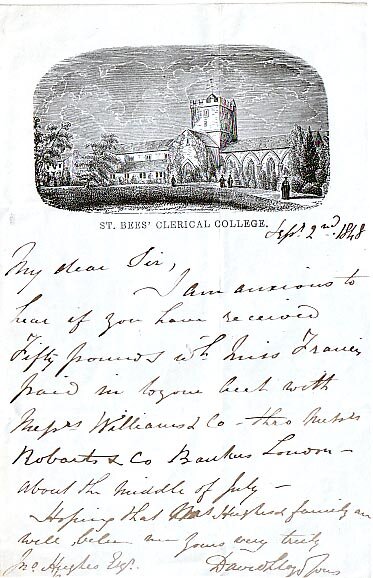 ST. BEES' CLERICAL COLLEGE.
Sept. 2nd. 1848
My dear Sir,
I am anxious to
hear if you have received
Fifty pounds wh Miss Francis
paid in to your acct with
Messrs Williams & Co - thro Messrs
Robarts & Co Bankers London -
about the middle of July -
Hoping that Mrs Hughes & family are
well, believe me yours very truly
Jno Hughes Esqr. David Lloyd